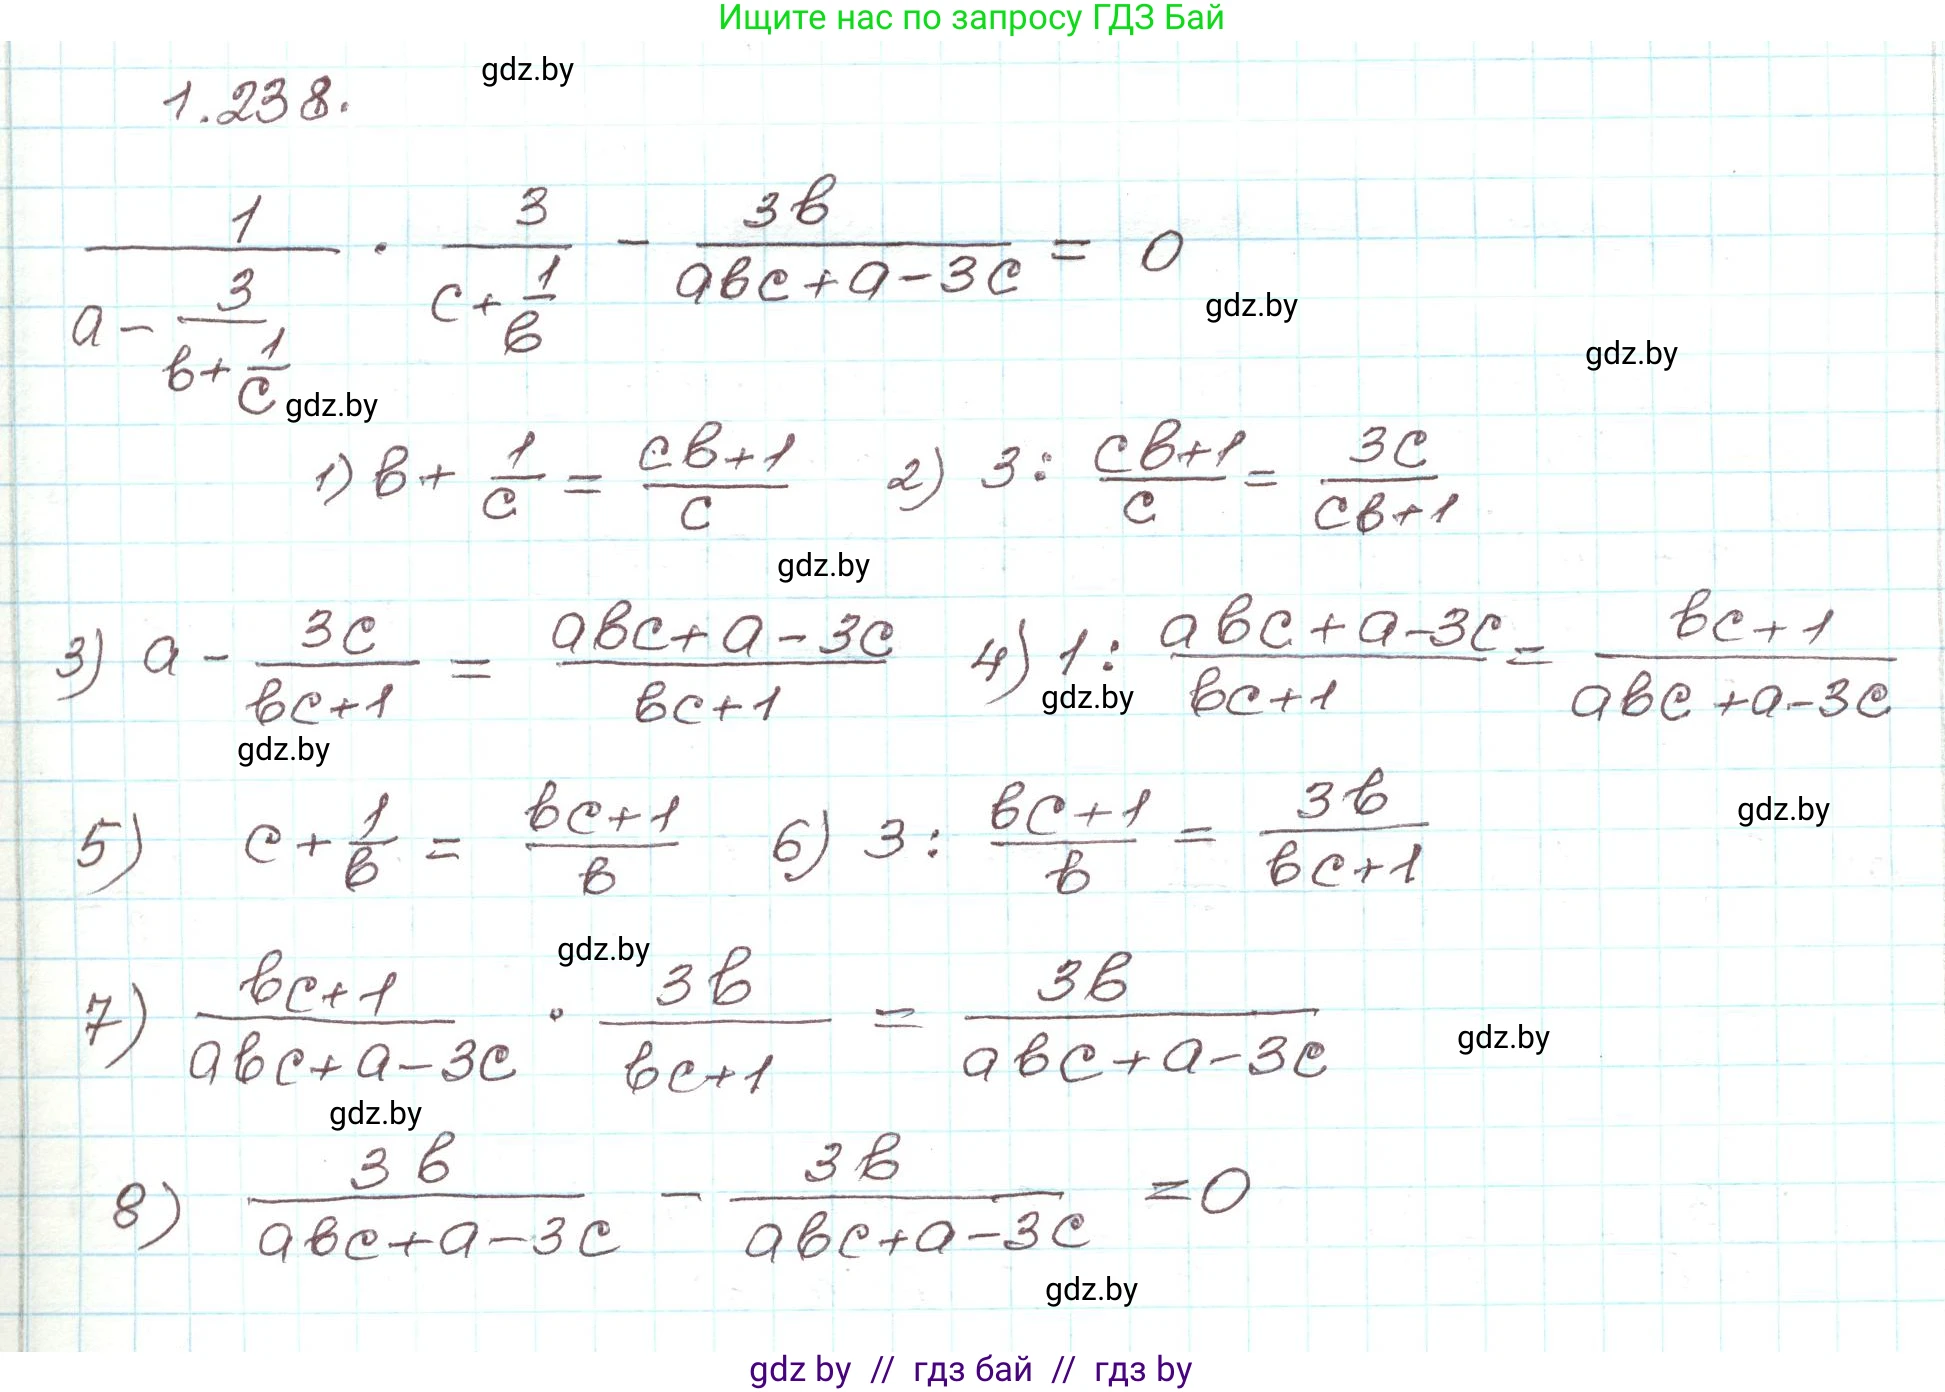 Ищите нас по запросу ГДЗ Бай
gdz.by
1.238.
1/(a - 3/(b + 1/c)) · 3/(c + 1/b) - 3b/(abc + a - 3c) = 0
gdz.by
gdz.by
gdz.by
1) b + 1/c = (cb+1)/c 2) 3 : (cb+1)/c = 3c/(cb+1)
gdz.by
3) a - 3c/(bc+1) = (abc+a-3c)/(bc+1) 4) 1 : (abc+a-3c)/(bc+1) = (bc+1)/(abc+a-3c)
gdz.by
gdz.by
5) c + 1/b = (bc+1)/b 6) 3 : (bc+1)/b = 3b/(bc+1)
gdz.by
gdz.by
7) (bc+1)/(abc+a-3c) · 3b/(bc+1) = 3b/(abc+a-3c)
gdz.by
gdz.by
8) 3b/(abc+a-3c) - 3b/(abc+a-3c) = 0
gdz.by
gdz by // гдз бай // гдз by